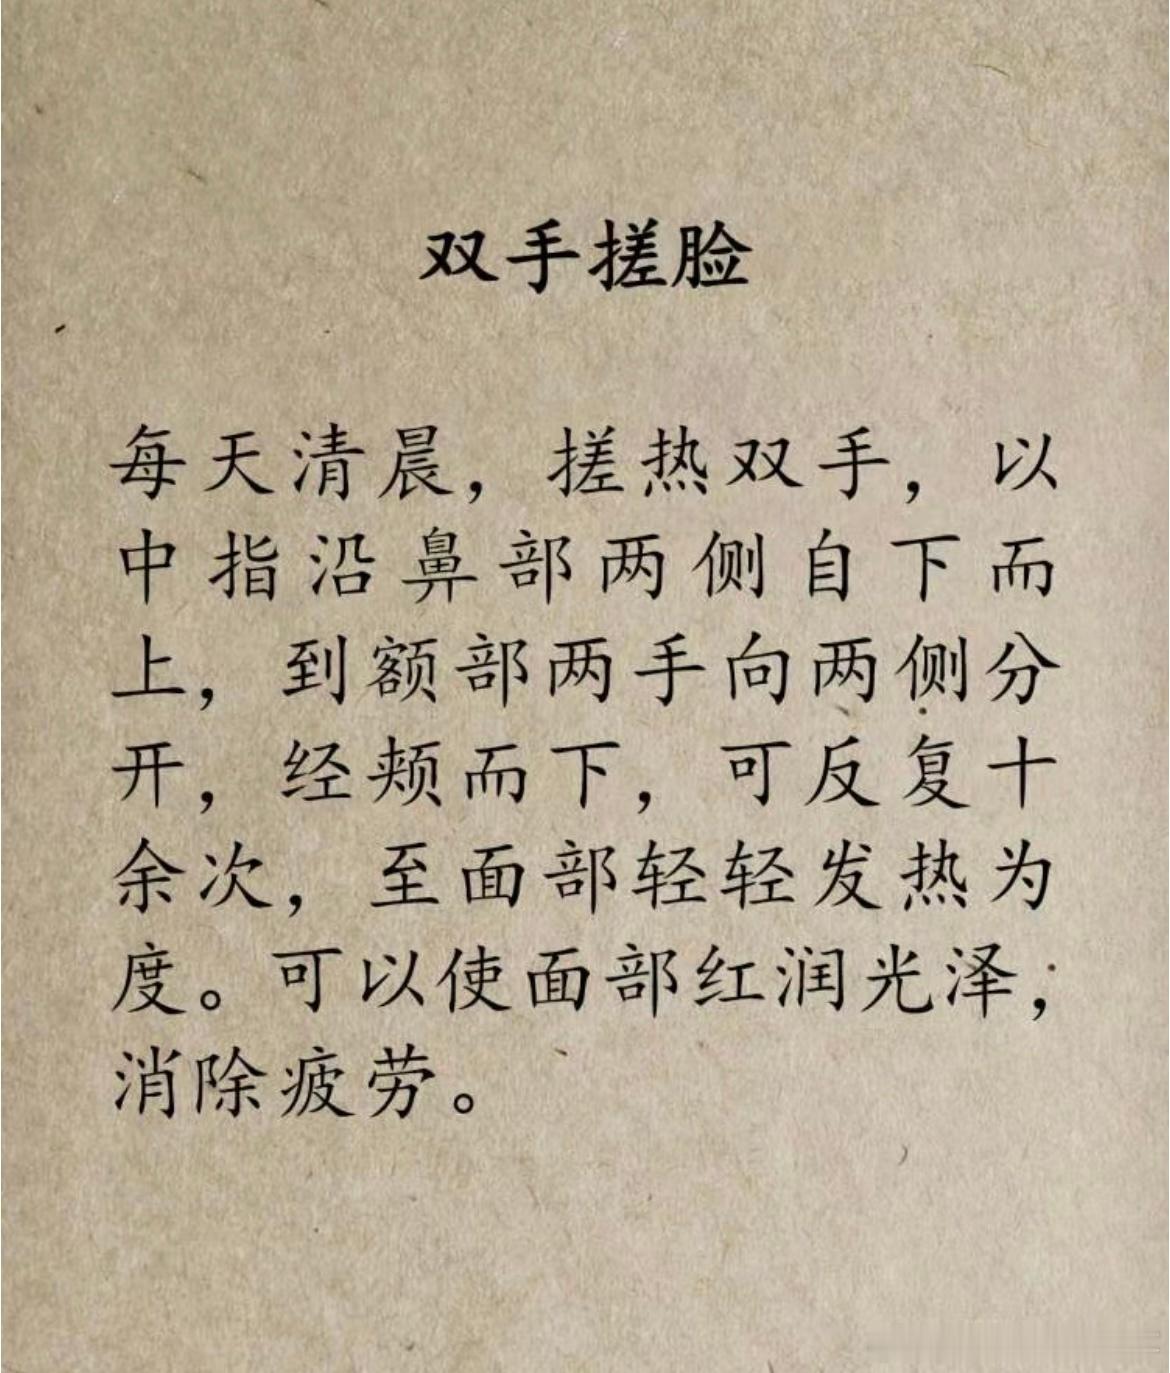 双手搓脸
每天清晨，搓热双手，以
中指沿鼻部两侧自下而
上，到额部两手向两侧分
开，经颊而下，可反复十
余次，至面部轻轻发热为
度。可以使面部红润光泽，
消除疲劳。